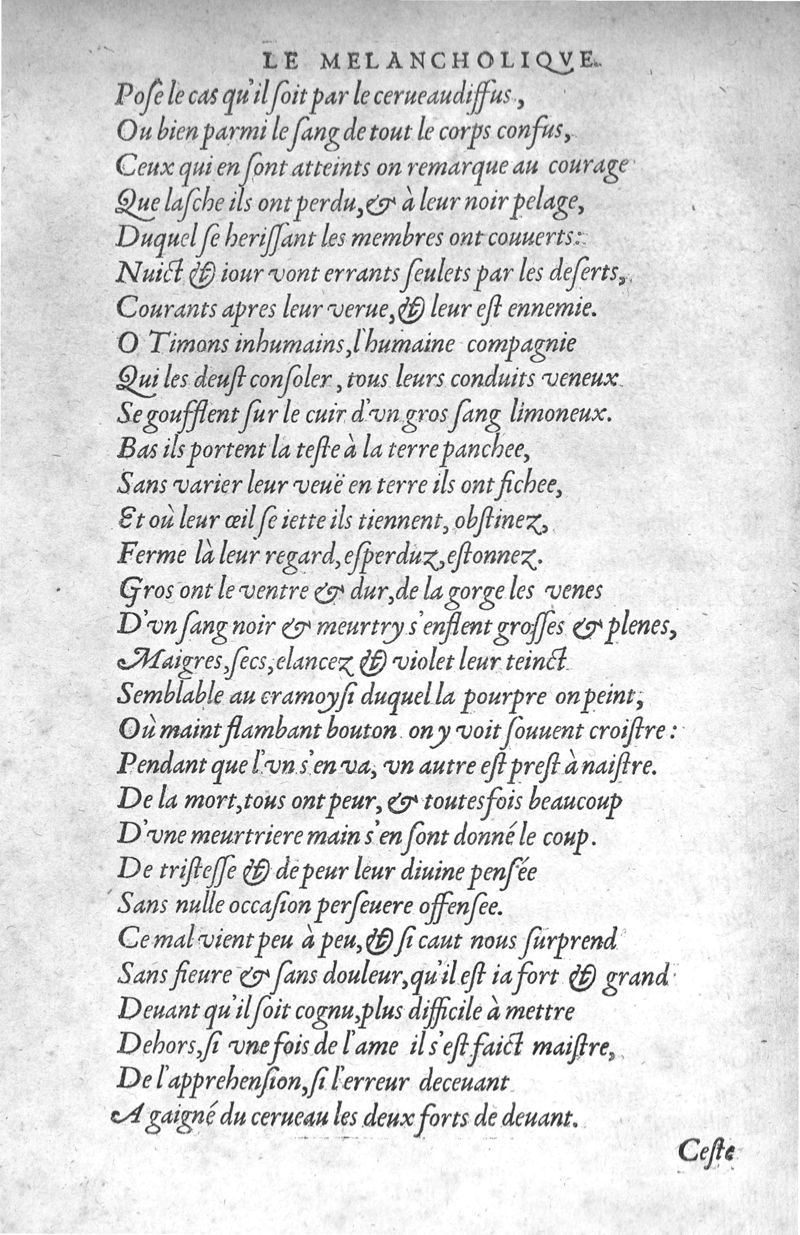 LE MELANCHOLIQVE.
Posé le cas qu'il ſoit par le cerueau diffus,
Ou bien parmi le ſang de tout le corps confus,
Ceux qui en ſont atteints on remarque au courage
Que laſche ils ont perdu, & à leur noir pelage,
Duquel ſe heriſſant les membres ont couuerts:
Nuict & iour vont errants ſeulets par les deſerts,
Courants apres leur verue, & leur eſt ennemie.
O Timons inhumains, l'humaine compagnie
Qui les deuſt conſoler, tous leurs conduits veneux
Se goufflent ſur le cuir d'vn gros ſang limoneux.
Bas ils portent la teſte à la terre panchee,
Sans varier leur veuë en terre ils ont fichee,
Et où leur œil ſe iette ils tiennent, obſtinez,
Ferme là leur regard, eſperduz, eſtonnez.
Gros ont le ventre & dur, de la gorge les venes
D'vn ſang noir & meurtry s'enflent groſſes & plenes,
Maigres, ſecs, elancez & violet leur teinct
Semblable au cramoyſi duquel la pourpre on peint,
Où maint flambant bouton on y voit ſouuent croiſtre:
Pendant que l'vn s'en va, vn autre eſt preſt à naiſtre.
De la mort, tous ont peur, & toutesfois beaucoup
D'vne meurtriere main s'en ſont donné le coup.
De triſteſſe & de peur leur diuine penſée
Sans nulle occaſion perſeuere offenſee.
Ce mal vient peu à peu, & ſi caut nous ſurprend
Sans fieure & ſans douleur, qu'il eſt ia fort & grand
Deuant qu'il ſoit cognu, plus difficile à mettre
Dehors, ſi vne fois de l'ame il s'eſt faict maiſtre,
De l'apprehenſion, ſi l'erreur deceuant
A gaigné du cerueau les deux forts de deuant.
Ceſte